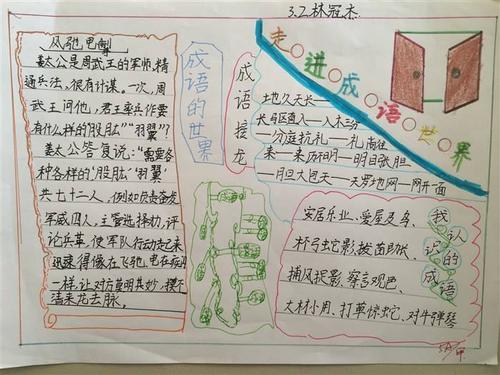 3.2林冠杰
走进成语世界
风驰电掣
姜太公是周武王的军师,精
通兵法,很有计谋。一次,周
武王问他,君王率兵作要
有什么样的"股肱""羽翼"?
姜太公答复说:"需要各
种各样的"股肱""羽翼"
共七十二人,例如负责奋发
军威四人,主管选择
论兵革,使军队行动起来
迅速得像在飞驰,电在疾闪
一样,让对方莫明其妙,摸不
清来龙去脉。
成语的世界
成语接龙
地久天长——
长马区直入——入木三分
——分庭抗礼——礼尚往
来——来历不明——明目张胆
——月旦大包天——天罗地网——网开一面
我认识的成语
安居乐业、爱屋及乌、
杯弓蛇影、拔苗助长、
捕风捉影、察言观色、
大材小用、打草惊蛇、对牛弹琴